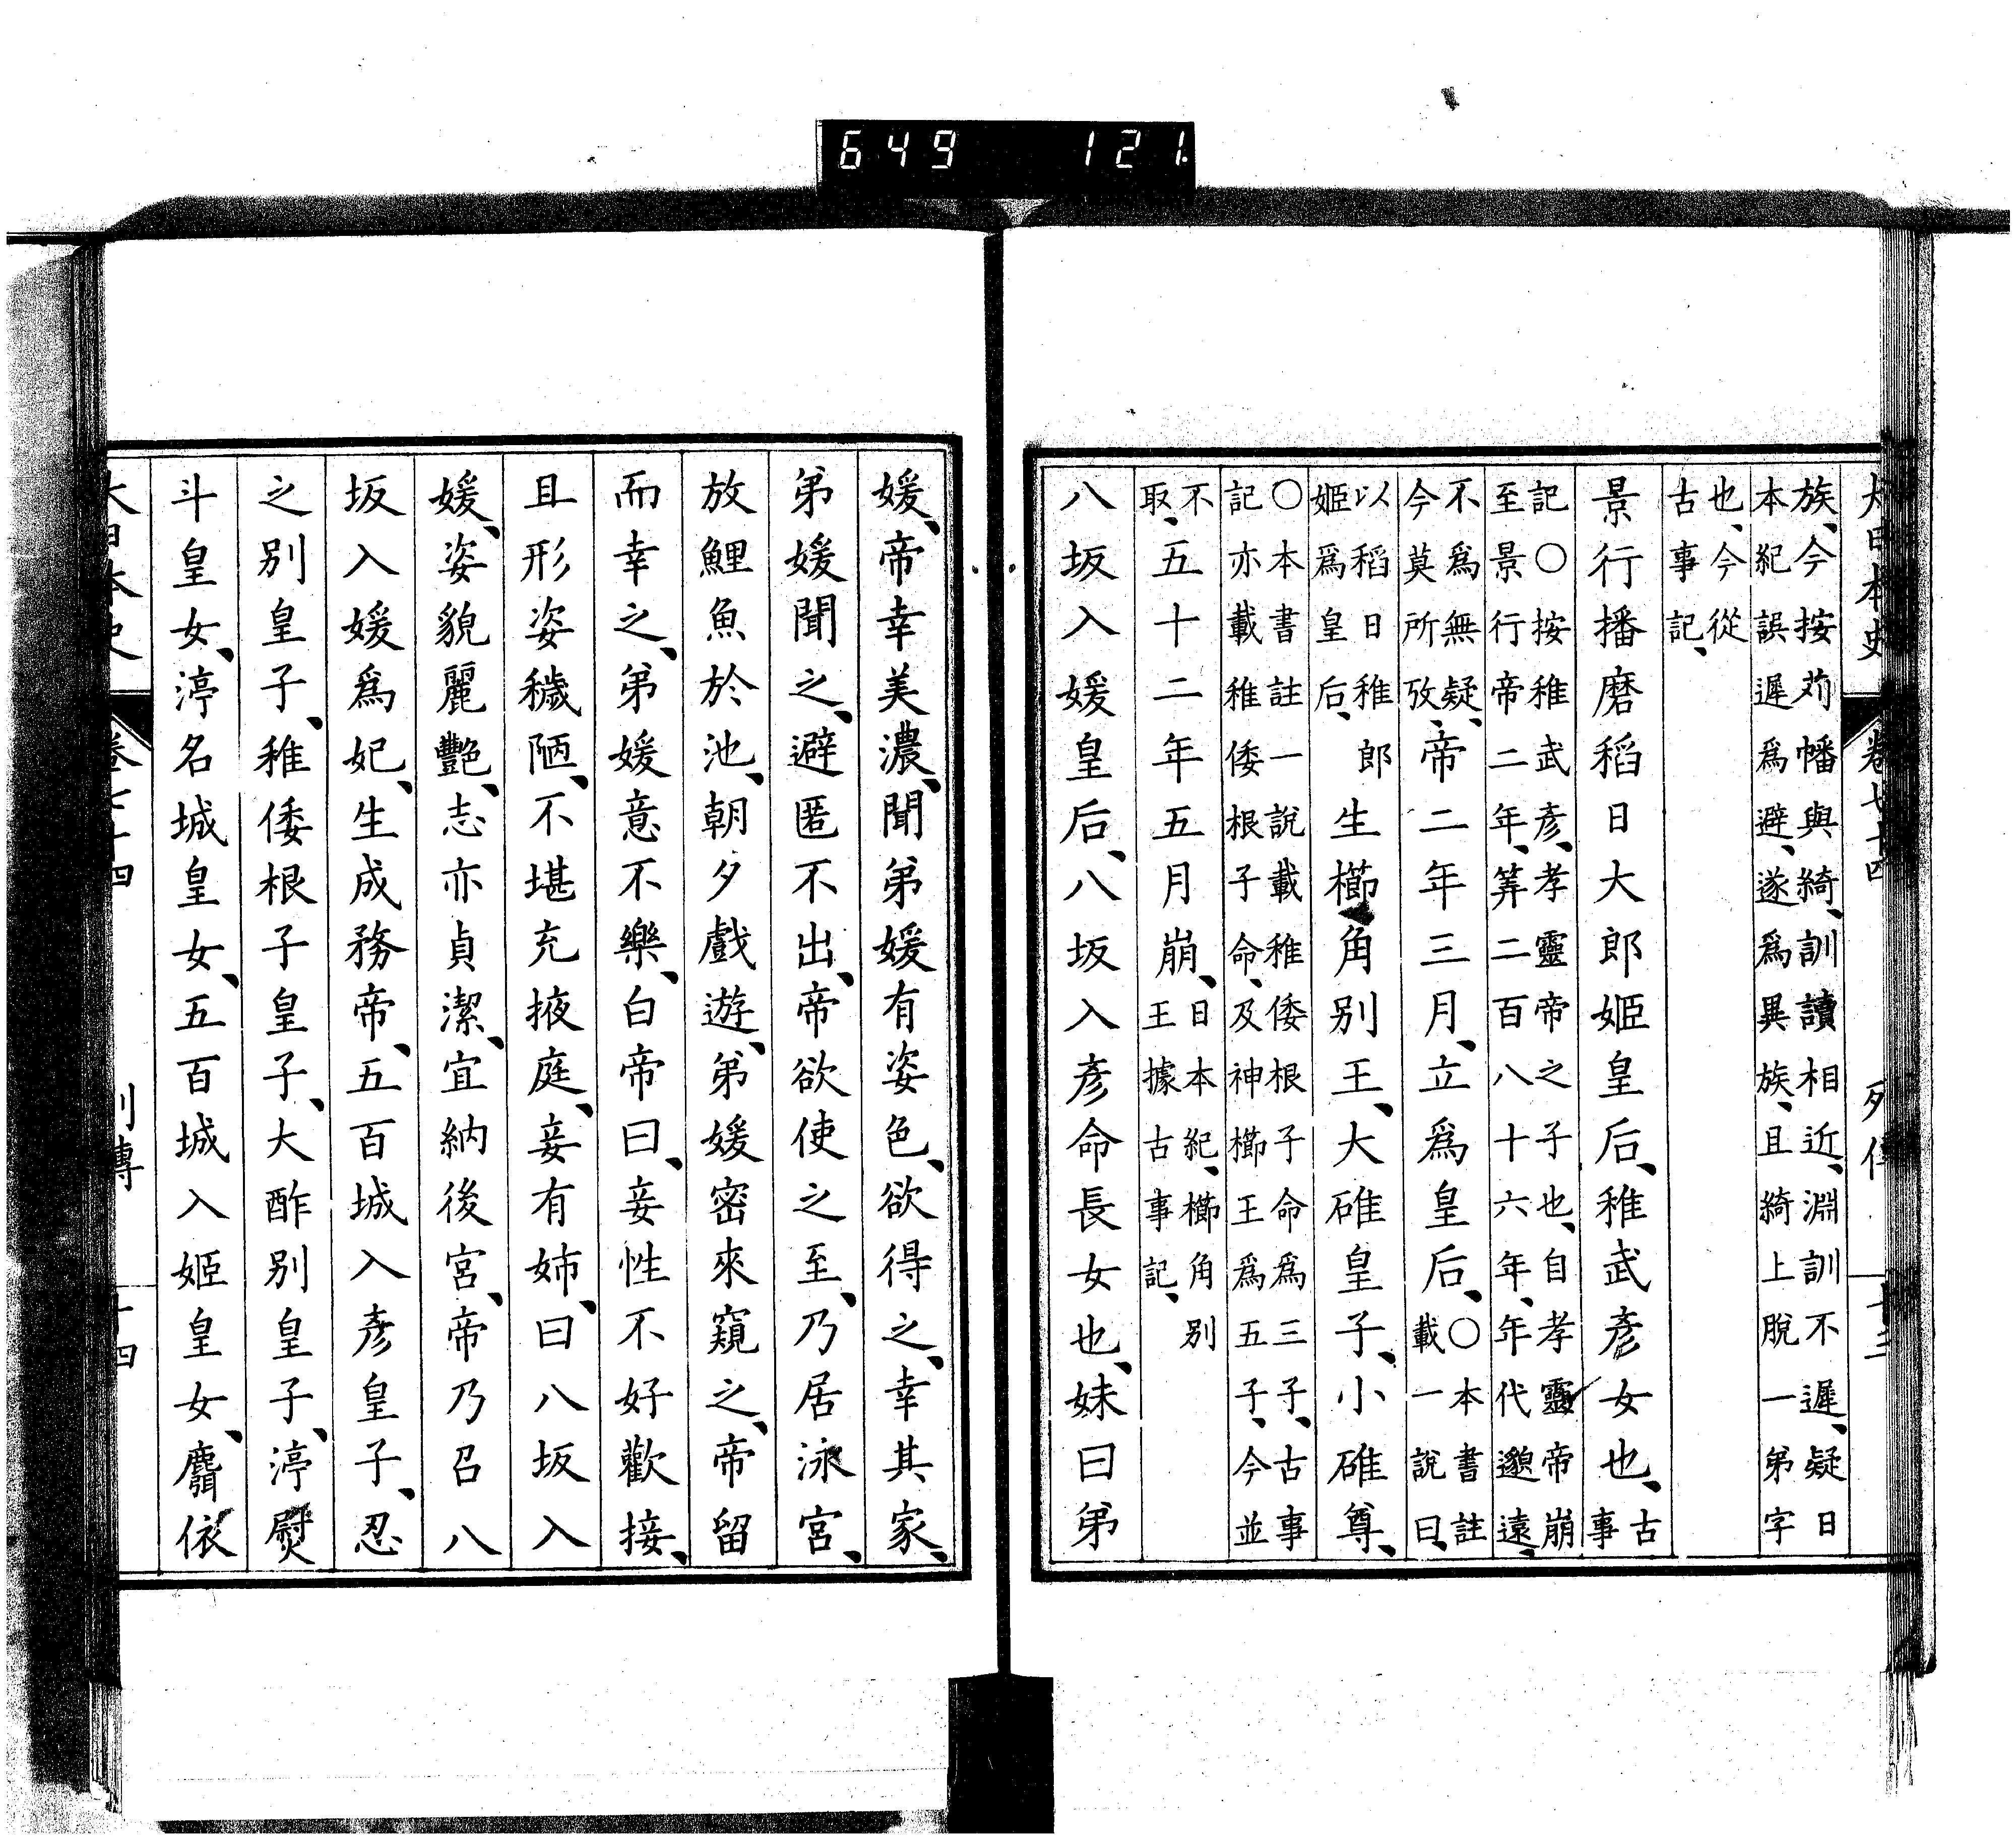 649 121
大日本史 卷七十四 列傳
族、今按苅幡與綺、訓讀相近、淵訓不遲、疑日
本紀誤遲爲避、遂爲異族、且綺上脫一弟字
也、今從
古事記、
景行播磨稻日大郎姬皇后、稚武彥女也、古
事
記○按稚武彥、孝靈帝之子也、自孝靈帝崩
至景行帝二年、筭二百八十六年、年代邈遠、
不爲無疑、
今莫所攷、帝二年三月、立爲皇后、○本書註
載一說曰、
以稻日稚郎
姬爲皇后、生櫛角別王、大碓皇子、小碓尊、
○本書註一說載稚倭根子命爲三子、古事
記亦載稚倭根子命、及神櫛王爲五子、今並
不
取、五十二年五月崩、日本紀、櫛角別
王據古事記、
八坂入媛皇后、八坂入彥命長女也、妹曰弟
媛、帝幸美濃、聞弟媛有姿色、欲得之、幸其家、
弟媛聞之、避匿不出、帝欲使之至、乃居泳宮、
放鯉魚於池、朝夕戲遊、弟媛密來窺之、帝留
而幸之、弟媛意不樂、白帝曰、妾性不好歡接、
且形姿穢陋、不堪充掖庭、妾有姉、曰八坂入
媛、姿貌麗艷、志亦貞潔、宜納後宮、帝乃召八
坂入媛爲妃、生成務帝、五百城入彥皇子、忍
之別皇子、稚倭根子皇子、大酢別皇子、渟熨
斗皇女、渟名城皇女、五百城入姬皇女、麛依
大日本史 卷七十四 列傳 十四